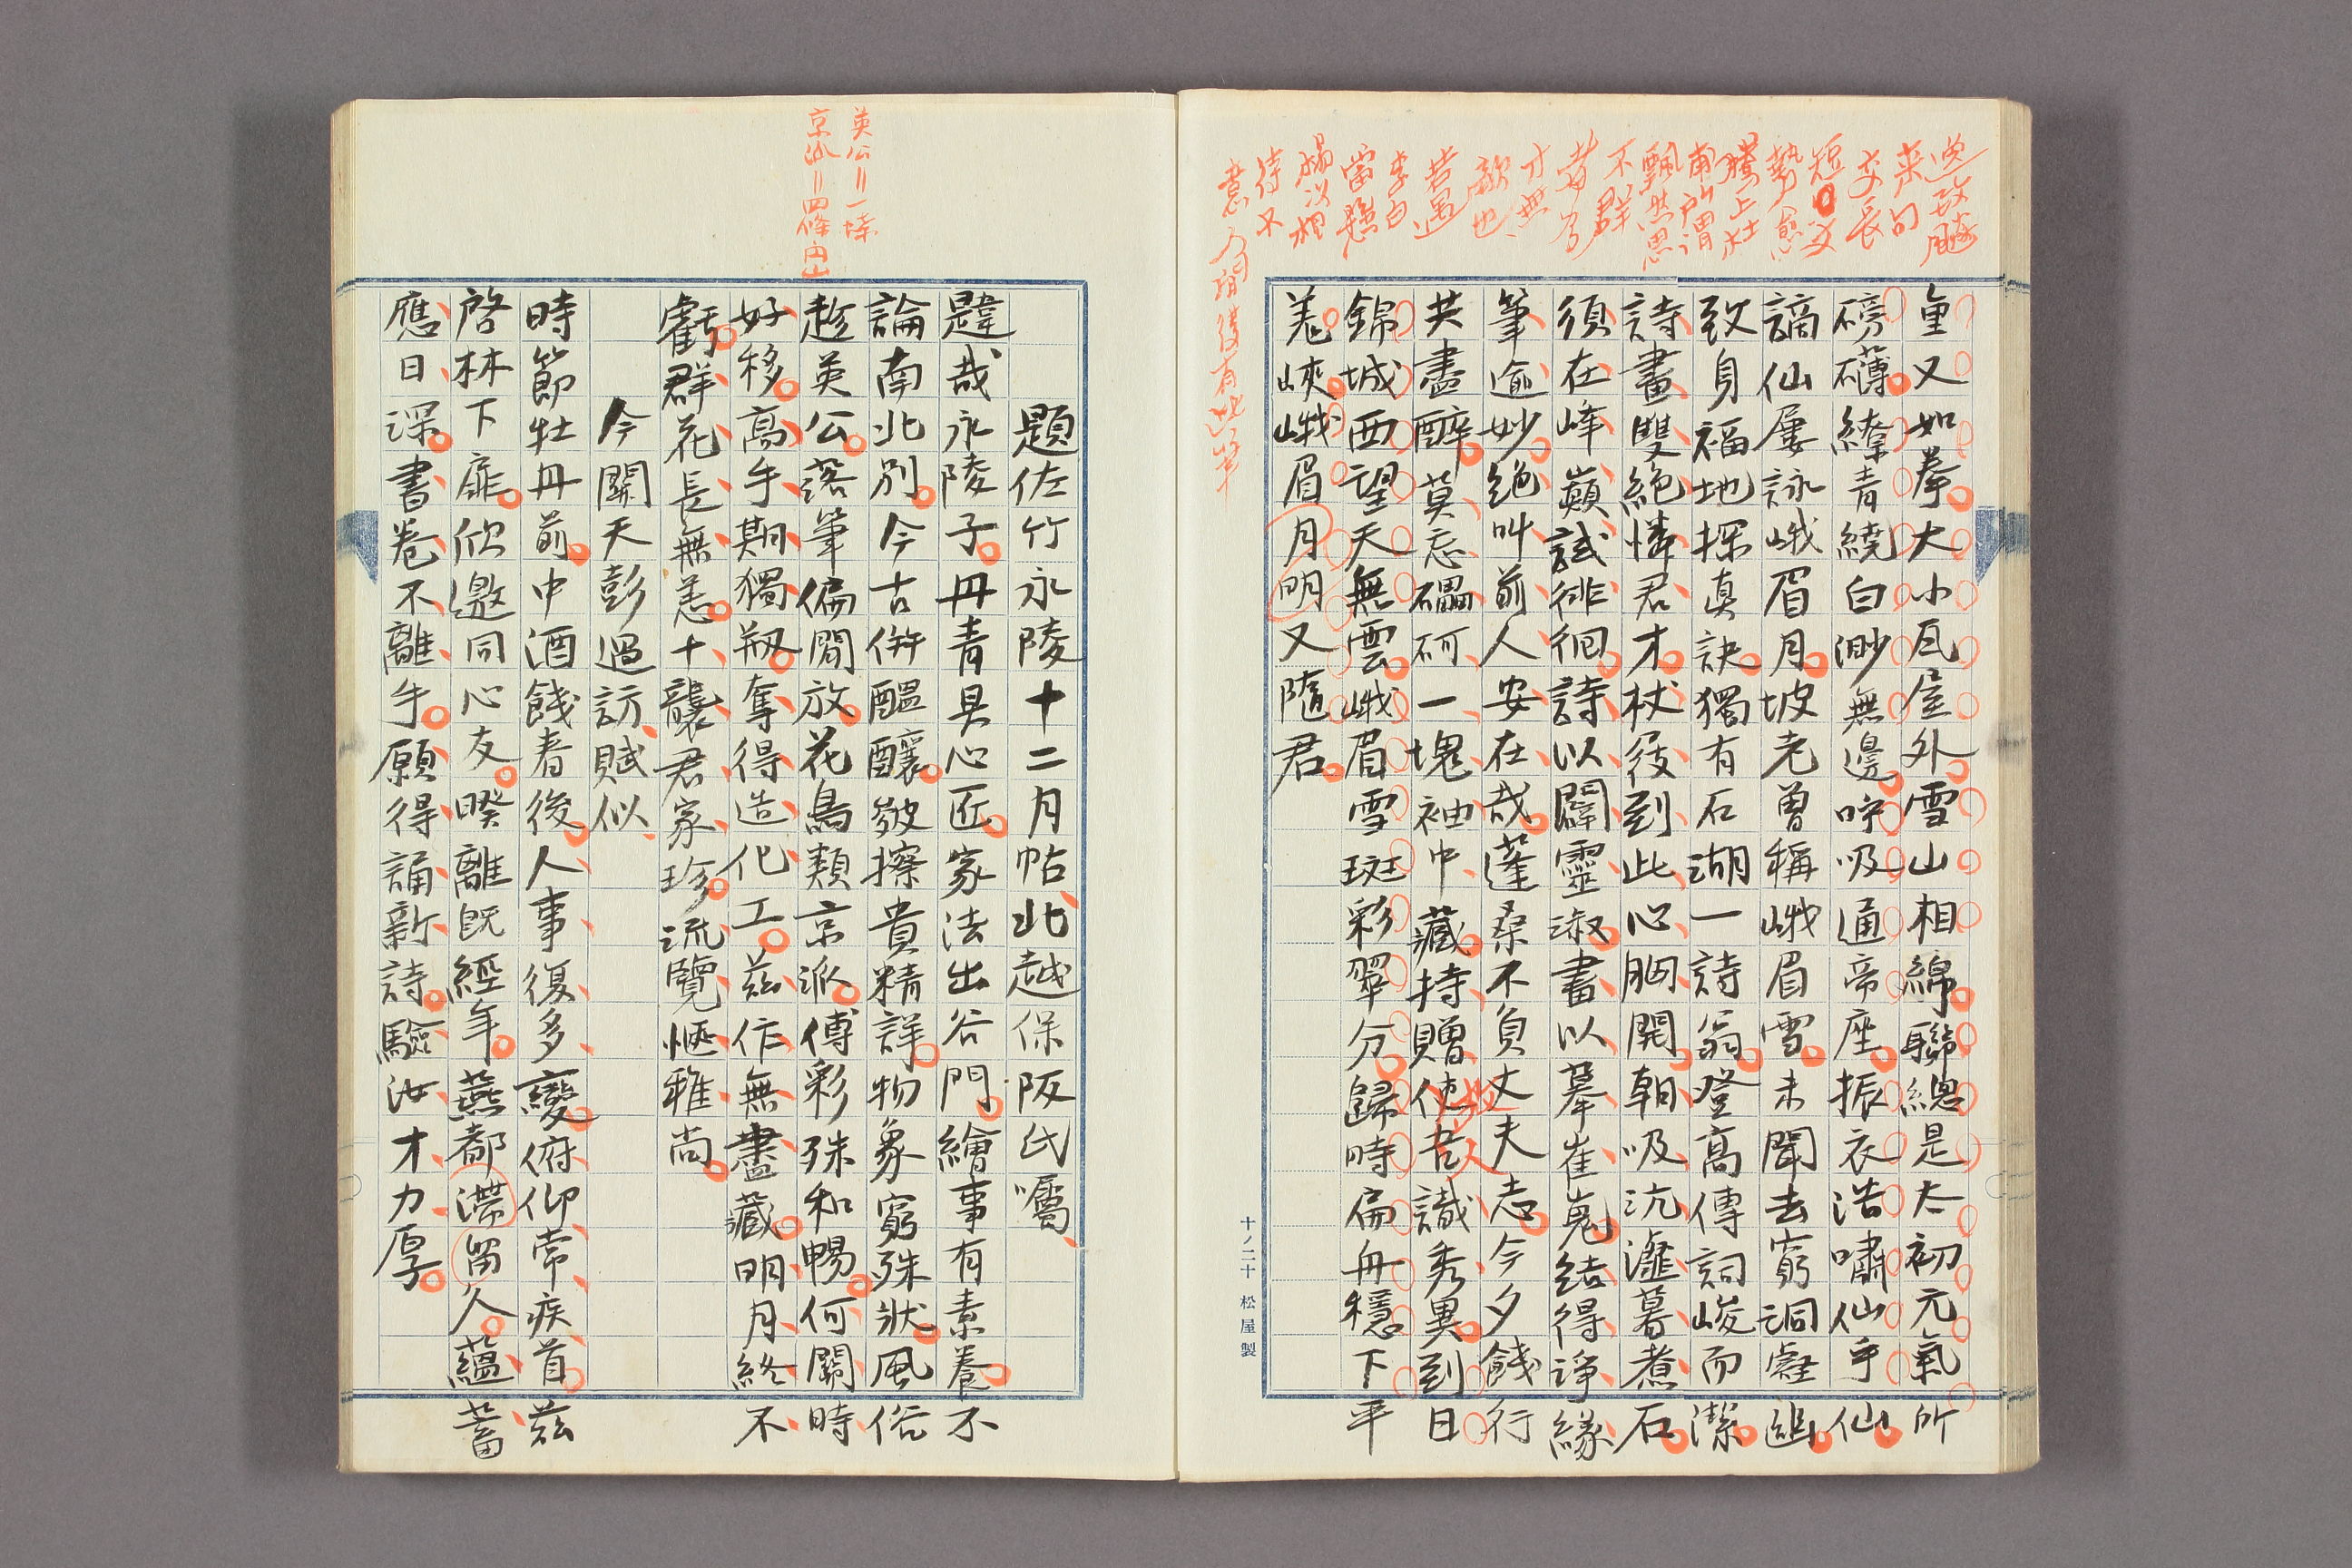 重又如拳大小瓦屋外雪山相綿聯總是太初元氣所
磅礴繚青繞白渺無邊呼吸通帝座振衣浩嘯仙乎仙
謫仙屢詠峨眉月坡老曾稱峨眉雪未聞去窮洞壑幽
致身福地探真訣獨有石湖一詩翁登高傳詞峻而潔
詩畫雙絕憐君才杖屐到此心胸開朝吸沆瀣暮煮石
須在峰巔試徘徊詩以闢靈淑畫以摹崔嵬結得諍緣
筆逾妙絕叫前人安在哉蓬桑不負丈夫志今夕餞行
共盡醉莫忘礧砢一塊袖中藏持贈使吾識秀異到日
錦城西望天無雲峨眉雪斑彩翠分歸時扁舟穩下平
羗峽峨眉月明又隨君
來句
長
短
勢愈
騰上杜
甫所謂
飄然思
不群
者
才無
敵也
若遇
李白
當
待又
十ノ二十 松屋製
英公=一蜂
京派=四條円山
題佐竹永陵十二月帖北越保阪氏囑
韙哉永陵子丹青具心匠家法出谷門繪事有素養不
論南北別今古併醞釀皴擦貴精詳物象窮殊狀風俗
趁英公落筆偏閒放花鳥類京派傅彩殊和暢何關時
好移高手期獨剏奪得造化工茲作無盡藏明月終不
虧群花長無恙十襲君家珍流覽愜雅尚
今關天彭過訪賦似
時節牡丹前中酒餞春後人事復多變俯仰常疾首茲
啓林下扉欣邀同心友暌離既經年燕都滯留久蘊蓄
應日深書卷不離手願得誦新詩驗汝才力厚